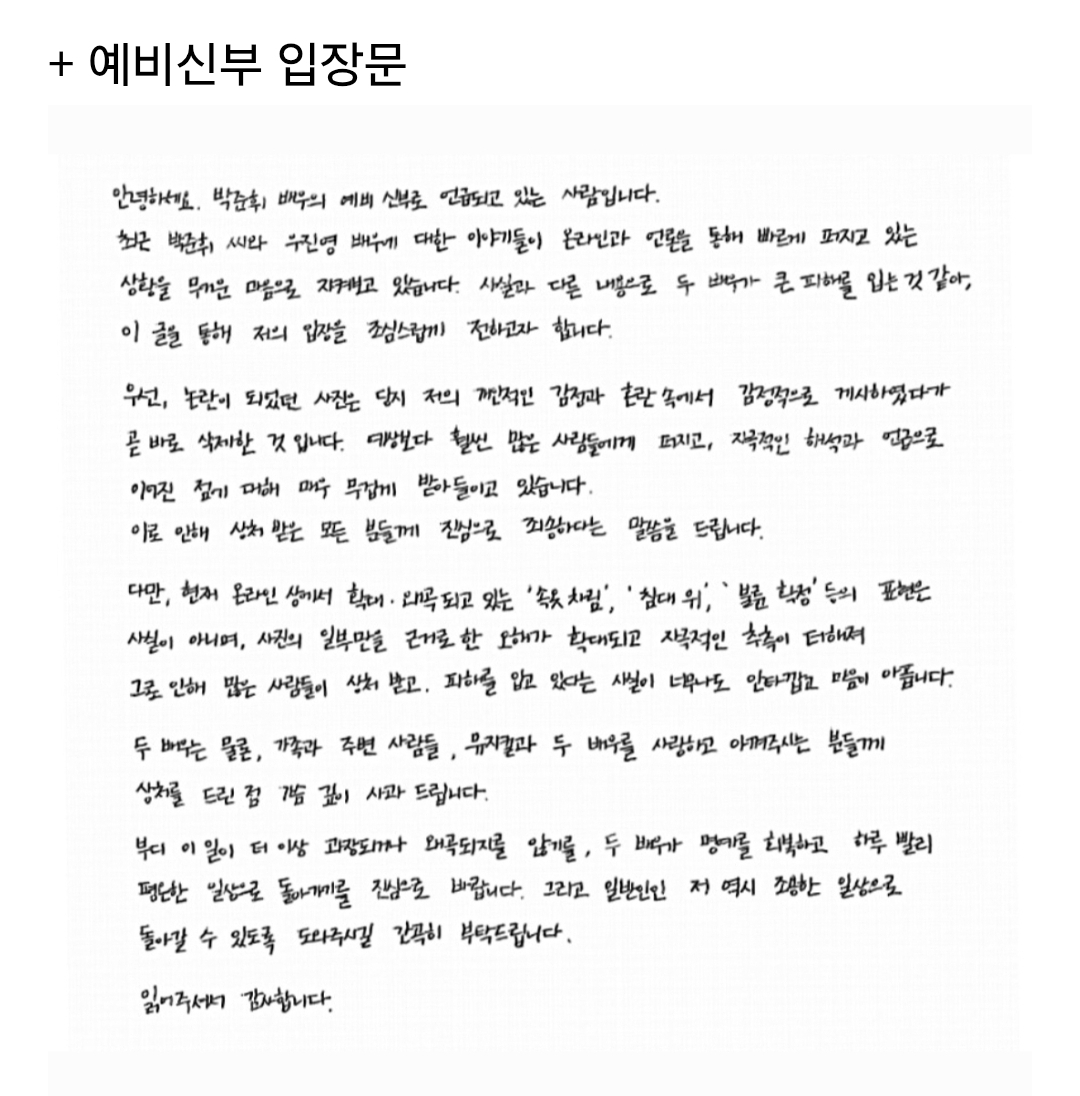 + 예비신부 입장문
안녕하세요. 박준휘 배우의 예비 신부로 언급되고 있는 사람입니다.
최근 박준휘 씨와 우진영 배우에 대한 이야기들이 온라인과 언론을 통해 빠르게 퍼지고 있는
상황을 무거운 마음으로 지켜보고 있습니다. 사실과 다른 내용으로 두 배우가 큰 피해를 입는 것 같아,
이 글을 통해 저의 입장을 조심스럽게 전하고자 합니다.
우선, 논란이 되었던 사진은 당시 저의 개인적인 감정과 혼란 속에서 감정적으로 게시하였다가
곧 바로 삭제한 것 입니다. 예상보다 훨씬 많은 사람들에게 퍼지고, 자극적인 해석과 언급으로
이어진 점에 대해 매우 무겁게 받아들이고 있습니다.
이로 인해 상처 받은 모든 분들께 진심으로 죄송하다는 말씀을 드립니다.
다만, 현재 온라인 상에서 확대·왜곡되고 있는 '속옷 차림', '침대 위', '불륜 확정' 등의 표현은
사실이 아니며, 사진의 일부만을 근거로 한 오해가 확대되고 자극적인 추측이 더해져
그로 인해 많은 사람들이 상처 받고. 피해를 입고 있다는 사실이 너무나도 안타깝고 마음이 아픕니다.
두 배우는 물론, 가족과 주변 사람들, 뮤지컬과 두 배우를 사랑하고 아껴주시는 분들께
상처를 드린 점 가슴 깊이 사과 드립니다.
부디 이 일이 더 이상 과장되거나 왜곡되지를 않기를, 두 배우가 명예를 회복하고 하루 빨리
평온한 일상으로 돌아가기를 진심으로 바랍니다. 그리고 일반인인 저 역시 조용한 일상으로
돌아갈 수 있도록 도와주시길 간곡히 부탁드립니다.
읽어주셔서 감사합니다.